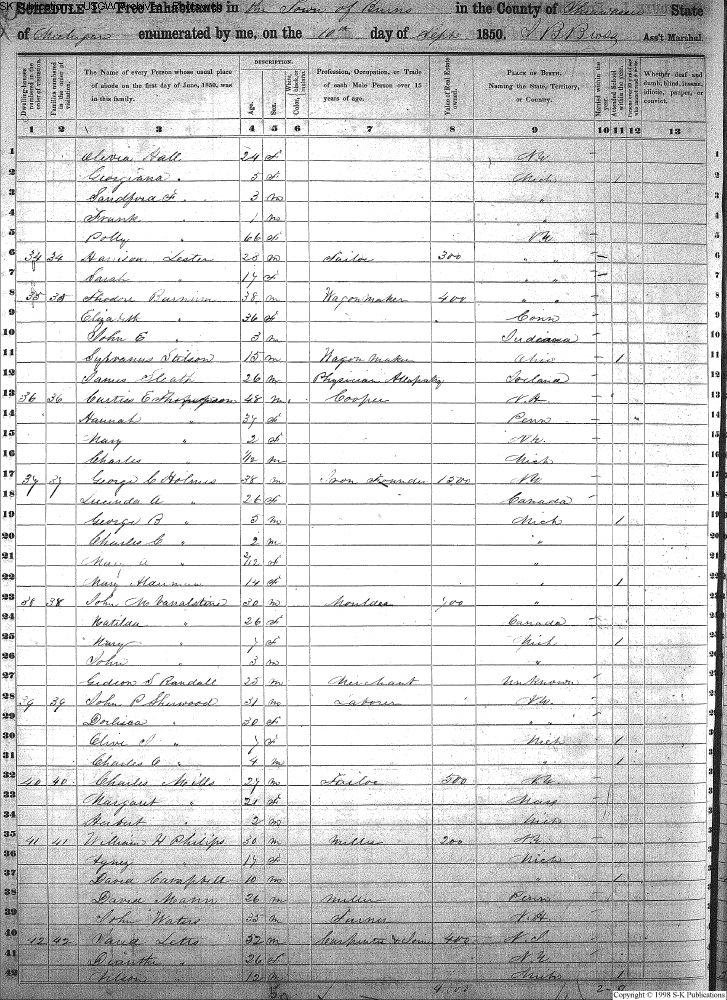 SCHEDULE I. Free Inhabitants in the Town of Burns in the County of Shiawassee State
of Michigan enumerated by me, on the 10th day of Sept 1850. Ass't Marshal.
Dwelling-houses numbered in the order of visitation.
Families numbered in the order of visitation.
The Name of every Person whose usual place of abode on the first day of June, 1850, was in this family.
DESCRIPTION.
Age.
Sex.
White, Color, black, or mulatto.
Profession, Occupation, or Trade of each Male Person over 15 years of age.
Value of Real Estate owned.
PLACE OF BIRTH. Naming the State, Territory, or Country.
Married within the year.
Attended School within the year.
Whether deaf and dumb, blind, insane, idiotic, pauper, or convict.
1 2 3 4 5 6 7 8 9 10 11 12 13
1 Olivia Hall 24 f N.Y. 1
2 Georgiana " 5 f Mich 1 2
3 Sandford F. " 3 m " 3
4 Frank " 1 m " 4
5 Polly " 66 f N.Y. 5
6 34 34 Harrison Lester 25 m Tailor 300 " " 6
7 Sarah " 17 f " " 7
8 35 35 Theodore Barnum 38 m Wagon maker 400 " " 8
9 Elizabeth " 36 f Conn 9
10 John E " 3 m Indiana 10
11 Sylvanus Stilson 15 m Wagon Maker Ohio 1 11
12 James Heath 26 m Physician Allopathy Ireland 12
13 36 36 Curtis E Thompson 48 m Cooper N.H. 13
14 Hannah " 37 f Penn 14
15 Mary " 2 f N.Y. 15
16 Charles " /12 m Mich 16
17 37 37 George C Holmes 38 m Iron Founder N.Y. 17
18 Lucinda A " 26 f Canada 18
19 George B " 5 m Mich 1 19
20 Charles C " 2 m " 20
21 Mary A " 2/12 f " 21
22 Mary 14 f " 1 22
23 38 38 John M Vanalstine 30 m Moulder " 23
24 Matilda " 26 f Canada 24
25 Mary " 7 f Mich 1 25
26 John " 3 m " 26
27 Gideon S Randall 25 m Merchant Unknown 27
28 39 39 John P Sherwood 31 m Laborer N.Y. 28
29 30 f " " 29
30 Olive " 7 f Mich 1 30
31 Charles C " 4 m " 1 31
32 40 40 Charles Mills 27 m Tailor 500 N.Y. 32
33 Margaret " 21 f Mass 33
34 Herbert " 2 m Mich 34
35 41 41 William H Philips 30 m Miller 200 N.Y. 35
36 17 f Mich 36
37 David Campbell 10 m 1 37
38 David Mann 26 m Miller Penn 38
39 John Waters 35 m N.H. 39
40 42 42 David Letts 32 m Carpenter & Join 400 N.J. 40
41 " 26 f N.Y. 41
42 " 12 m Mich 1 42
Copyright © 1998 S-K Publications